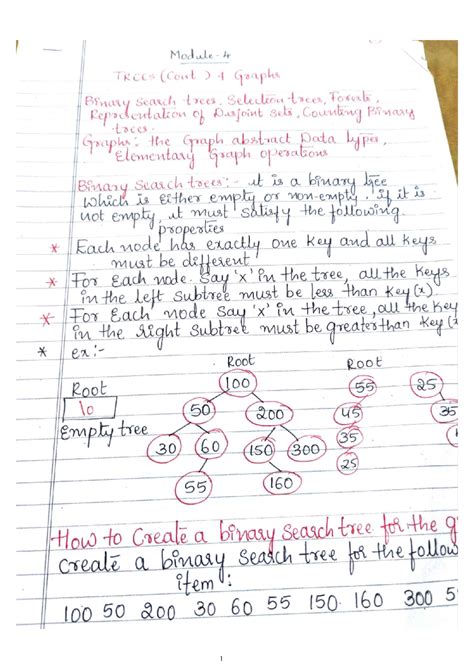 Module-4
TREES (Cont.) & Graphs
Binary Search trees, Selection trees, Forests,
Representation of Disjoint sets, Counting Binary
trees.
Graphs: the Graph abstract Data types,
Elementary Graph operations
Binary Search trees:- it is a binary tree
which is either empty or non-empty. if it is
not empty, it must satisfy the following
properties
* Each node has exactly one key and all keys
must be different
* For Each node. Say 'x' in the tree, all the keys
in the left subtree must be less than key(x).
* For Each node say 'x' in the tree, all the key
in the right subtree must be greater than key(
* ex:-
Root Root
Root 100 55 25
10 50 200 45 35
Empty tree 30 60 150 300 35
55 160 25
How to Create a binary search tree for the g
Create a binary search tree for the follow
item:
100 50 200 30 60 55 150 160 300 5
1